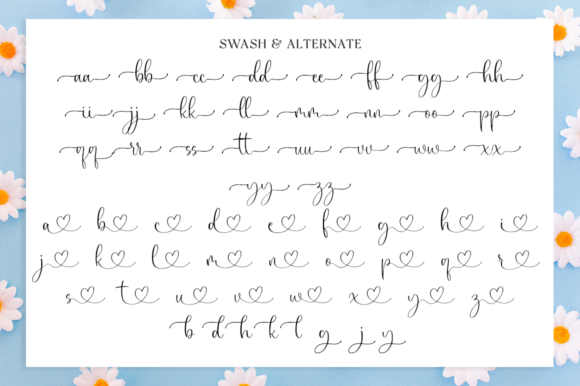 SWASH & ALTERNATE
aa bb cc dd ee ff gg hh
ii jj kk ll mm nn oo pp
qq rr ss tt uu vv ww xx
yy zz
a b c d e f g h i
j k l m n o p q r
s t u v w x y z
b d h k l g j y